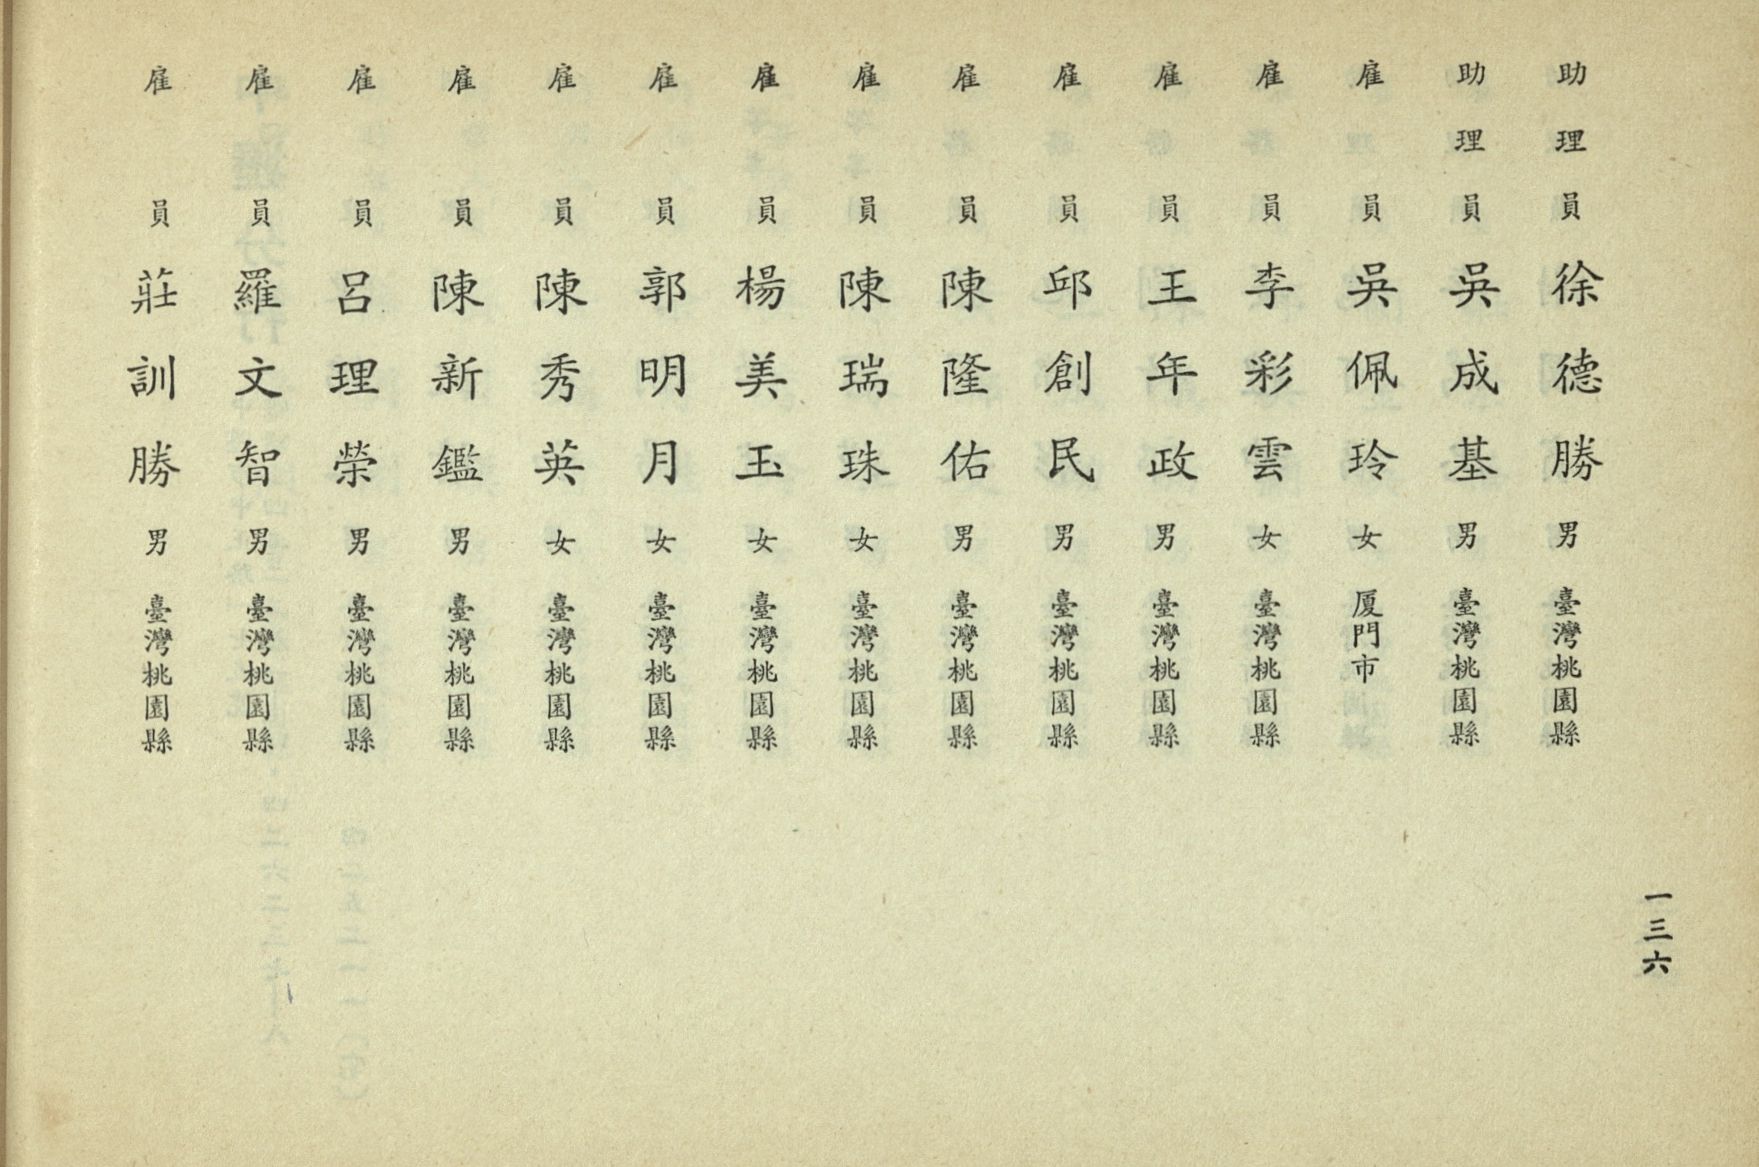 一三六
助理員徐德勝男臺灣桃園縣
助理員吳成基男臺灣桃園縣
雇員吳佩玲女厦門市
雇員李彩雲女臺灣桃園縣
雇員王年政男臺灣桃園縣
雇員邱創民男臺灣桃園縣
雇員陳隆佑男臺灣桃園縣
雇員陳瑞珠女臺灣桃園縣
雇員楊美玉女臺灣桃園縣
雇員郭明月女臺灣桃園縣
雇員陳秀英女臺灣桃園縣
雇員陳新鑑男臺灣桃園縣
雇員呂理榮男臺灣桃園縣
雇員羅文智男臺灣桃園縣
雇員莊訓勝男臺灣桃園縣